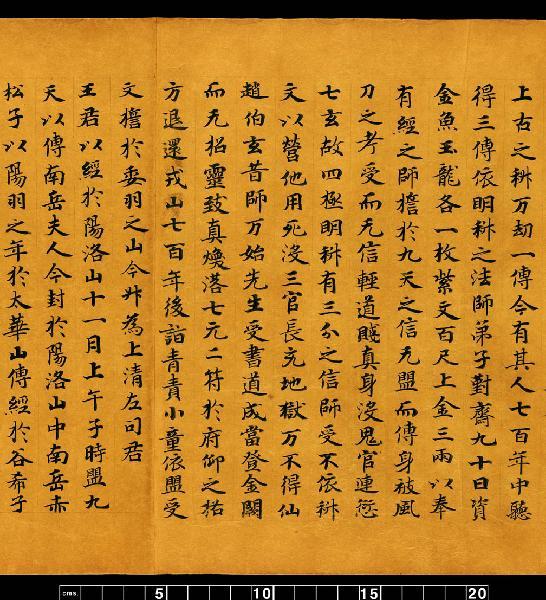 上古之科万劫一傳今有其人七百年中聽
得三傳依明科之法師弟子對齋九十日資
金魚玉龍各一枚紫文百尺上金三兩以奉
有經之師擔於九天之信无盟而傳身被風
刀之考受而无信輕道賤真身沒鬼官連愆
七玄故四極明科有三分之信師受不依科
文以營他用死沒三官長充地獄万不得仙
趙伯玄昔師万始先生受書道成當登金闕
而无招靈致真煥落七元二符於府仰之祐
方退還戎山七百年後詣青責小童依盟受
文擔於委羽之山今升為上清左司君
王君以經於陽洛山十一月上午子時盟九
天以傳南岳夫人今封於陽洛山中南岳赤
松子以陽羽之年於太華山傳經於谷希子
cms. 5 10 15 20